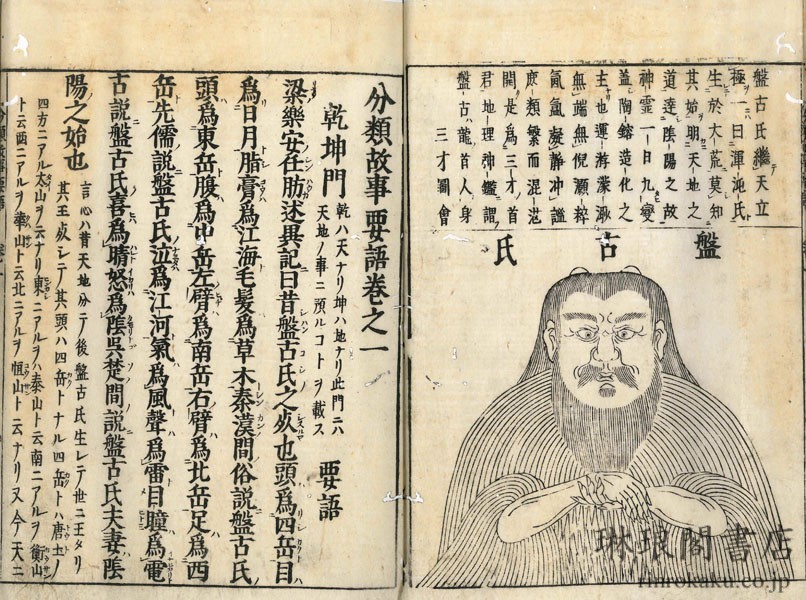 盤古氏繼天立
極一曰渾沌氏
生於大荒莫知
其始明天地之
道達陰陽之故
神靈一日九變
蓋陶鎔造化之
主也運游蒙
無端無倪灝粹
氤氳凝靜冲謐
庶類繁而混茫
開是爲三才首
君地理神鑑謂
盤古龍首人身
三才圖會
盤古氏
分類故事要語卷之一
乾坤門
乾ハ天ナリ坤ハ地ナリ此門ニハ
天地ノ事ニ預ルコトヲ載ス
要語
梁樂安任肪述異記曰昔盤古氏之死也頭爲四岳目
爲日月脂膏爲江海毛髮爲草木秦漢間俗說盤古氏
頭爲東岳腹爲中岳左臂爲南岳右臂爲北岳足爲西
岳先儒說盤古氏泣爲江河氣爲風聲爲雷目瞳爲電
古說盤古氏喜爲晴怒爲陰吳楚間說盤古氏夫妻陰
陽之始也
言心ハ昔天地分テ後盤古氏生レテ世ニ王タリ
其王死シテ其頭ハ四岳トナル四岳トハ唐土ノ
四方ニアル太山ヲ云ナリ東ニアルヲハ泰山ト云南ニアルヲ衡山
ト云西ニアルヲ華山ト云北ニアルヲ恒山ト云ナリ又今天ニ
琳琅閣書店
rinrokaku.co.jp